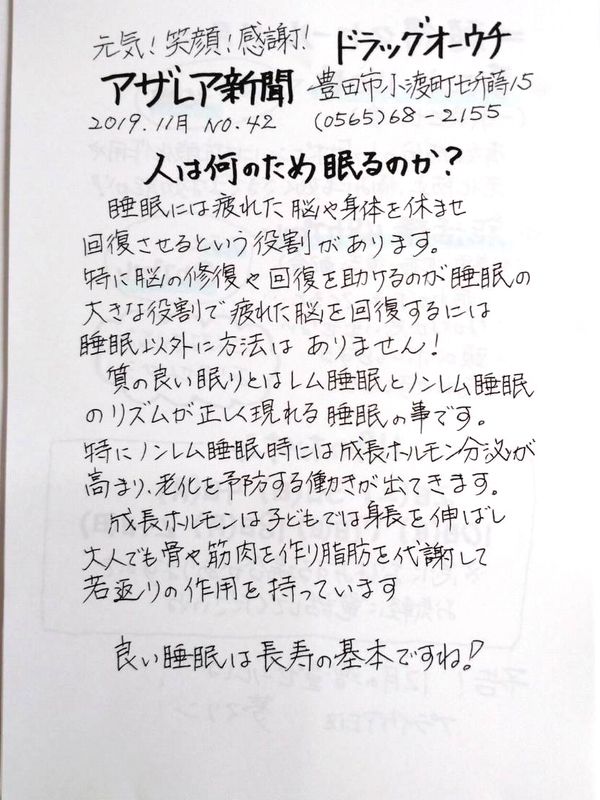 元気!笑顔!感謝! ドラッグオーウチ
アザレア新聞 豊田市小渡町七升蒔15
2019.11月 NO.42 (0565)68-2155
人は何のため眠るのか?
睡眠には疲れた脳や身体を休ませ
回復させるという役割があります。
特に脳の修復や回復を助けるのが睡眠の
大きな役割で疲れた脳を回復するには
睡眠以外に方法はありません!
質の良い眠りとはレム睡眠とノンレム睡眠
のリズムが正しく現れる睡眠の事です。
特にノンレム睡眠時には成長ホルモン分泌が
高まり、老化を予防する働きが出てきます。
成長ホルモンは子どもでは身長を伸ばし
大人でも骨や筋肉を作り脂肪を代謝して
若返りの作用を持っています
良い睡眠は長寿の基本ですね!